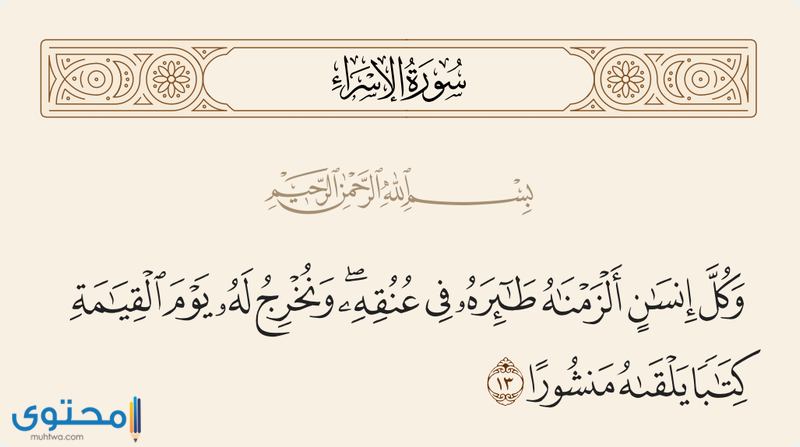 سُورَةُ الإِسْرَاءِ
بِسْمِ ٱللَّهِ ٱلرَّحْمَٰنِ ٱلرَّحِيمِ
وَكُلَّ إِنسَٰنٍ أَلْزَمْنَٰهُ طَٰٓئِرَهُۥ فِى عُنُقِهِۦ ۖ وَنُخْرِجُ لَهُۥ يَوْمَ ٱلْقِيَٰمَةِ
كِتَٰبًا يَلْقَىٰهُ مَنشُورًا ١٣
محتوى
muhtwa.com